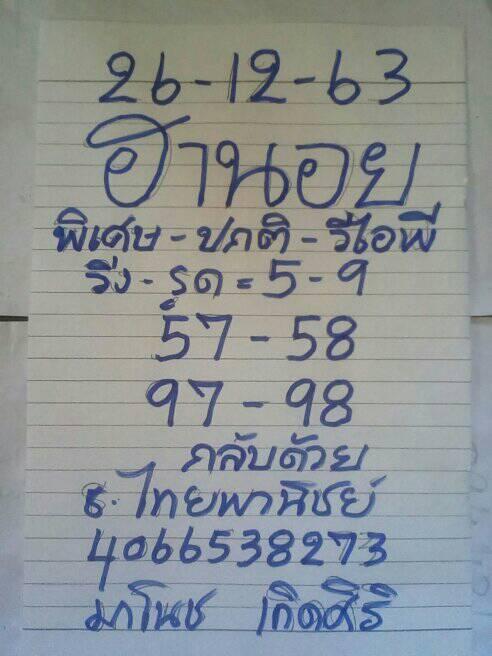 26-12-63
ฮานอย
พิเศษ - ปกติ - วีไอพี
วิ่ง - รูด = 5 - 9
57 - 58
97 - 98
กลับด้วย
ธ. ไทยพานิชย์
4066538273
มาโนช เกิดศิริ